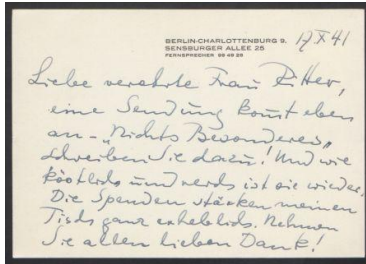 BERLIN-CHARLOTTENBURG 9.
SENSBURGER ALLEE 25
FERNSPRECHER 99 49 25
17 X 41
Liebe verehrte Frau Ritter,
eine Sendung komt eben
an - "Nichts Besonderes"
schreiben Sie dazu! Und wie
köstlich und ist sie wieder.
Die Spenden stärken meinen
Tisch ganz erheblich. Nehmen
Sie allen lieben Dank!